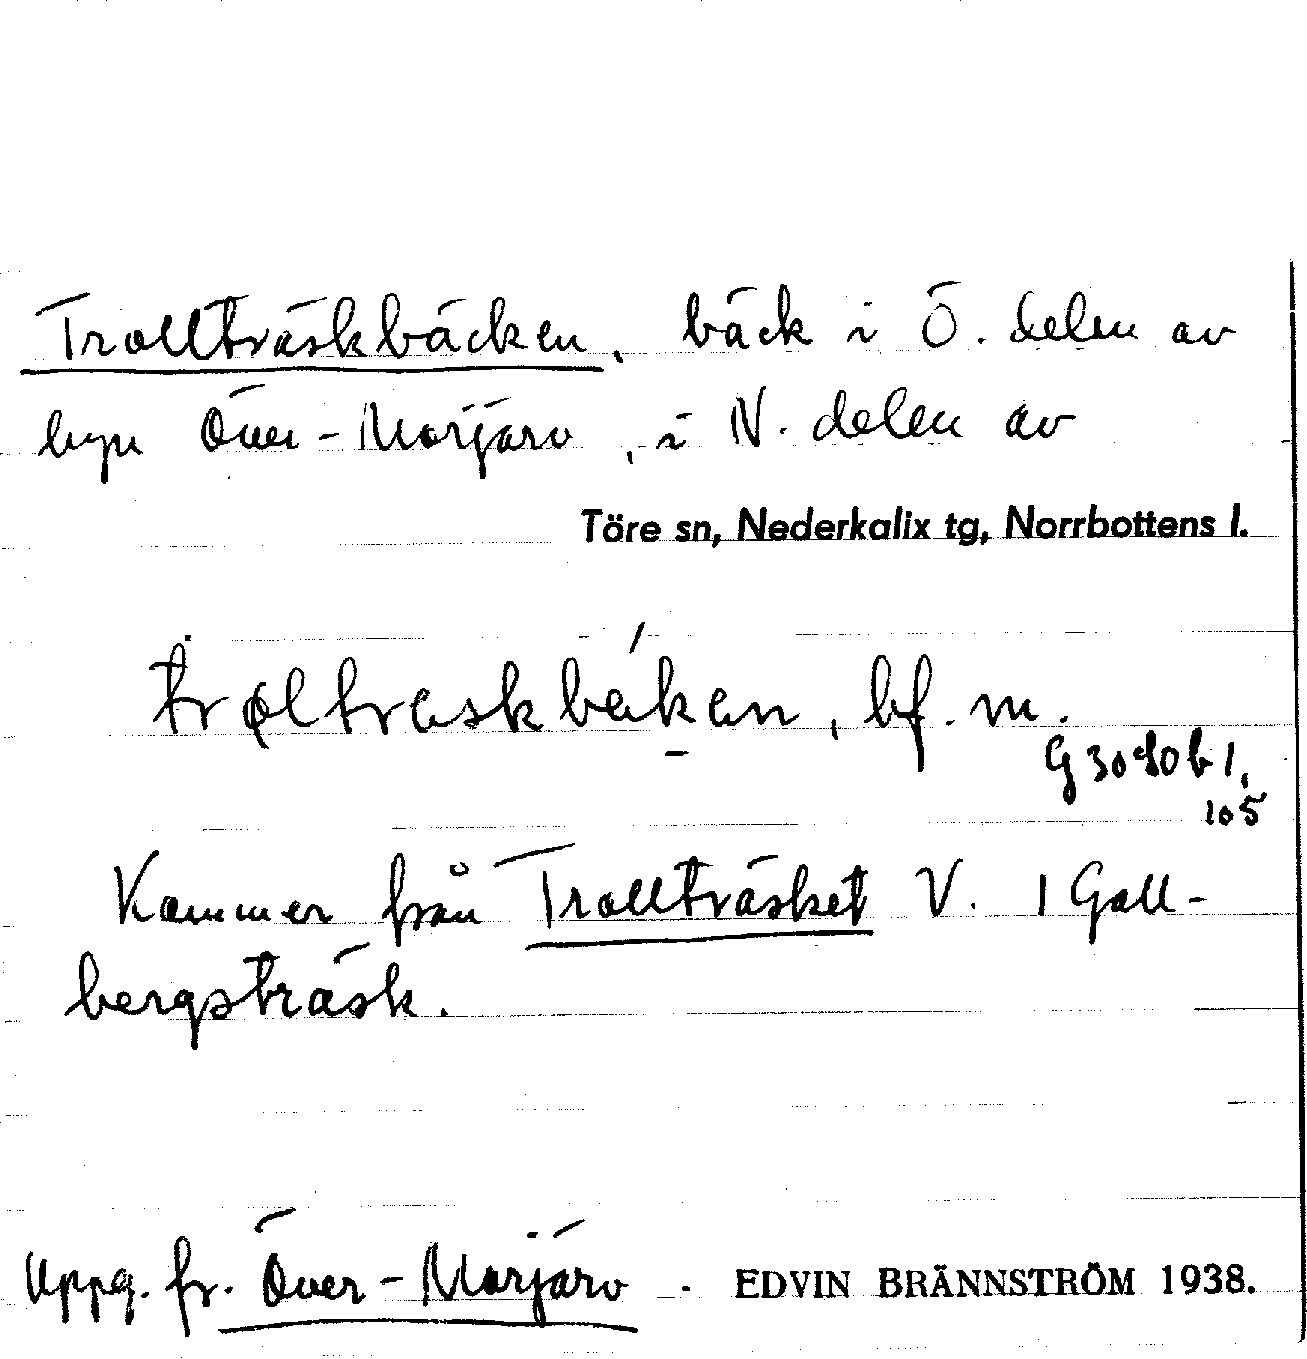 Trollträskbäcken, bäck i Ö. delen av
byn Över-Morjärv, i N. delen av
Töre sn, Nederkalix tg, Norrbottens l.
bf. m.
105
Kommer från Trollträsket V. I Gall-
bergsträsk.
Uppg. fr. Över-Morjärv - EDVIN BRÄNNSTRÖM 1938.